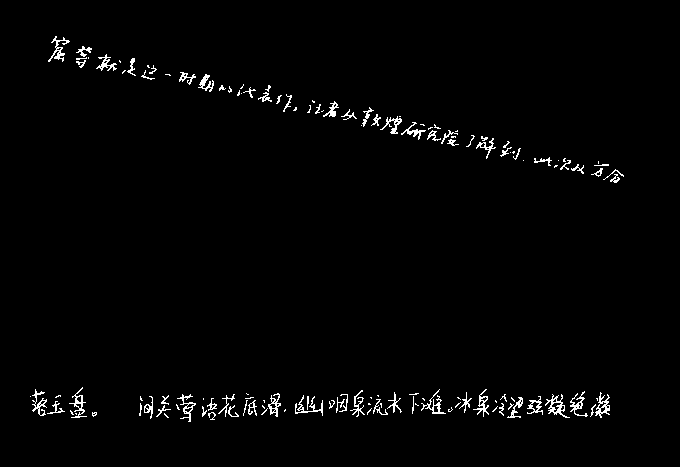 窟等就是这一时期的代表作。记者从敦煌研究院了解到，此次从方台
落玉盘。 间关莺语花底滑，幽咽泉流水下滩。冰泉冷涩弦凝绝，凝